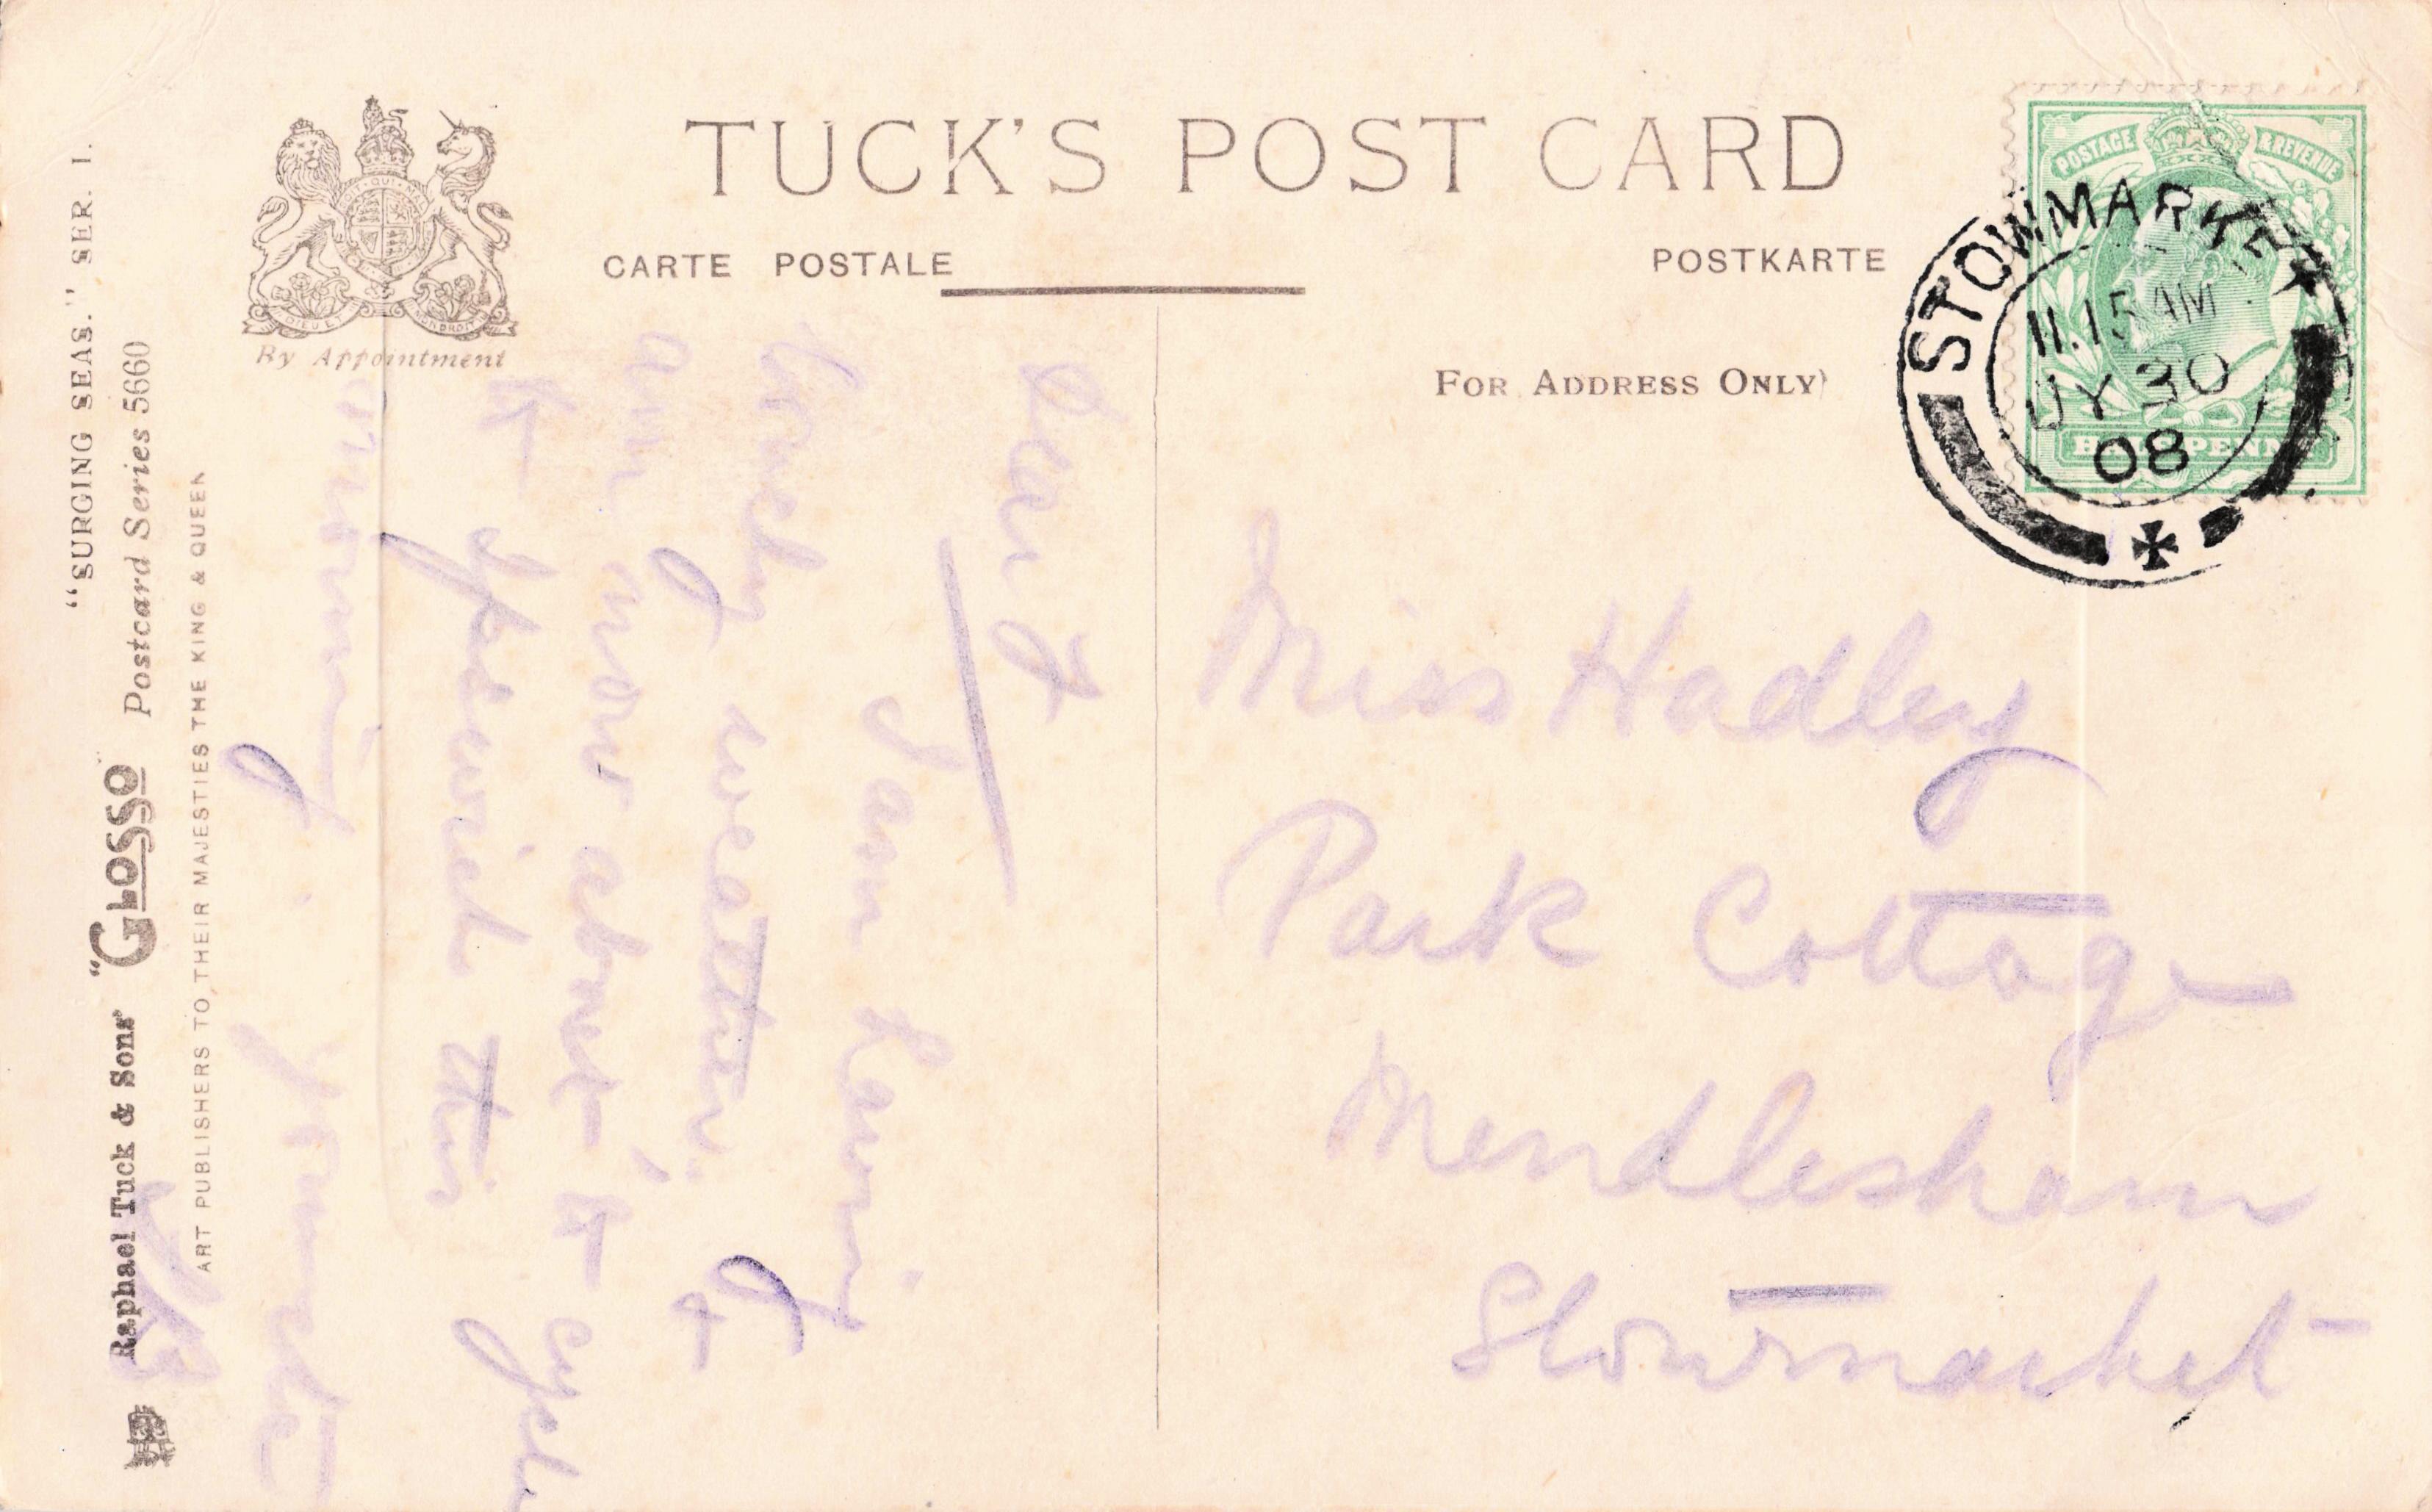 TUCK'S POST CARD
CARTE POSTALE
POSTKARTE
By Appointment
FOR ADDRESS ONLY)
POSTAGE & REVENUE
HALFPENNY
STOWMARKET
11.15 AM
JY 30
08
Miss Hadley
Park Cottage
Mendlesham
Stowmarket
Dear
I am having
lovely weather &
am now about to cycle
to Ipswich this
"SURGING SEAS." SER. I.
Raphael Tuck & Sons' "GLOSSO" Postcard Series 5660
ART PUBLISHERS TO THEIR MAJESTIES THE KING & QUEEN